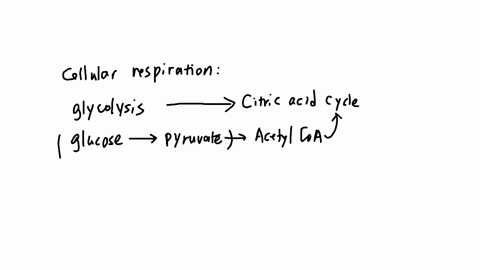 Cellular respiration:
glycolysis → Citric acid cycle
(glucose → pyruvate) → Acetyl CoA